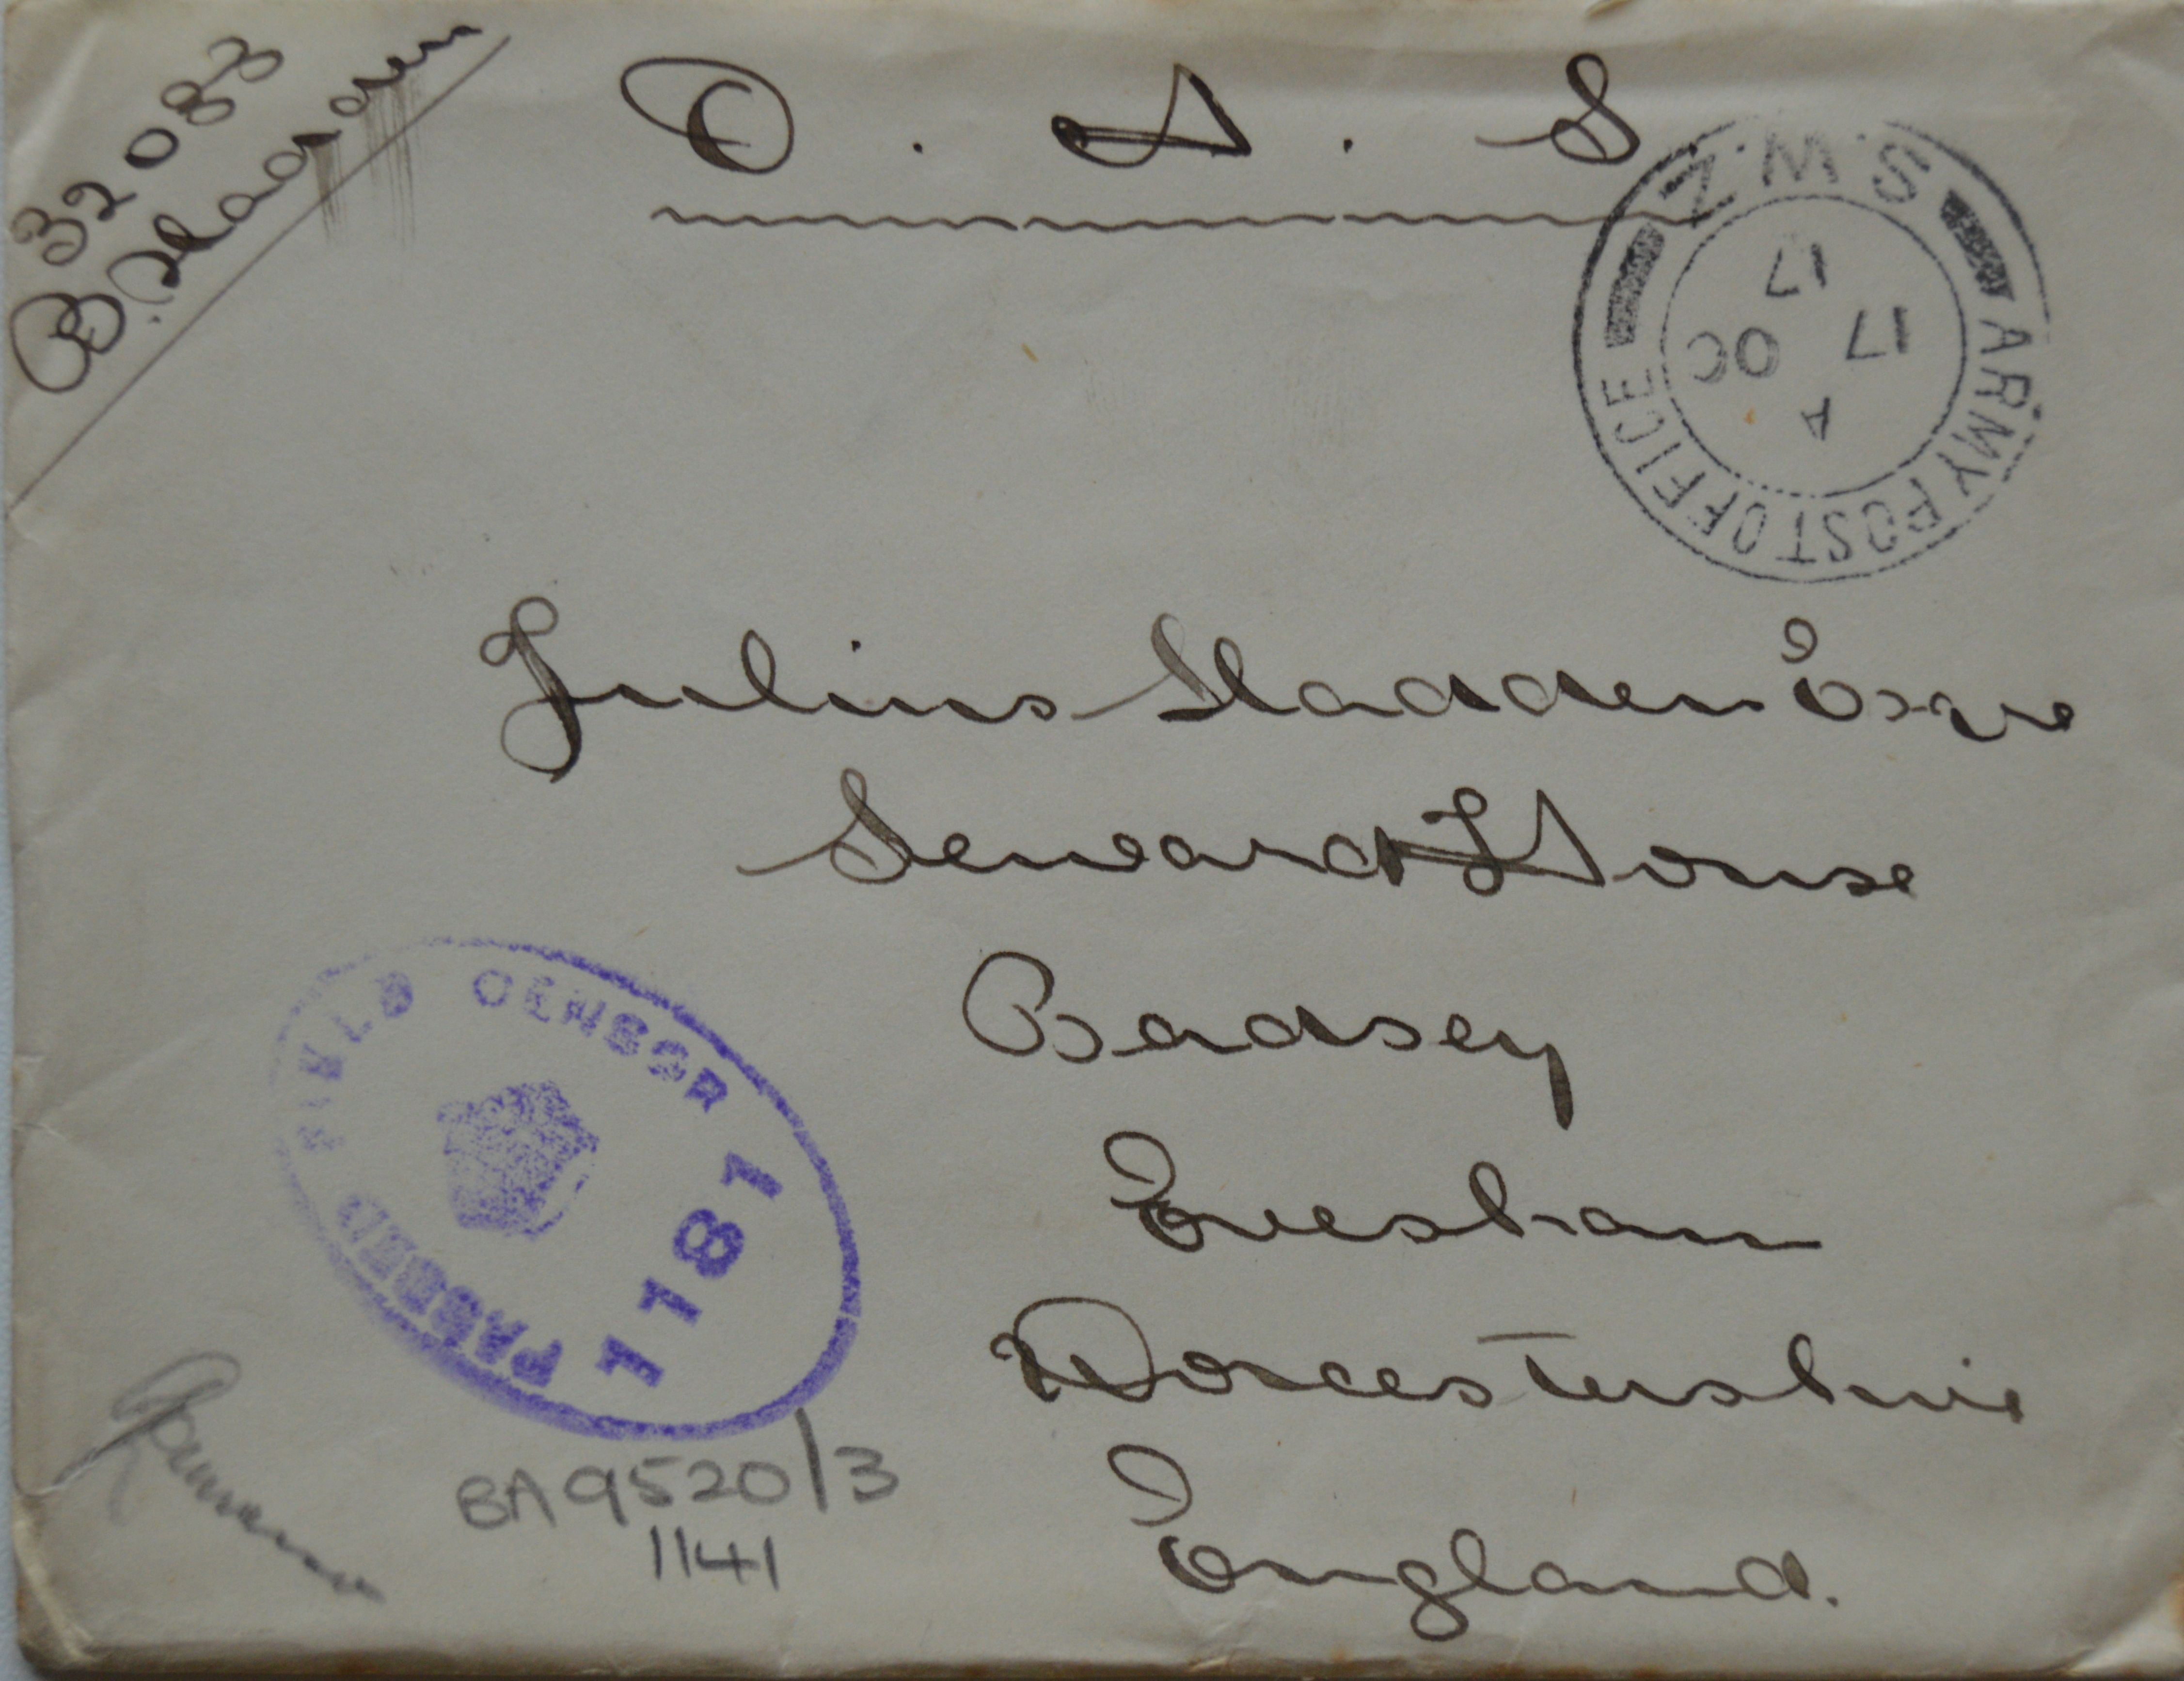 32083
O. A. S.
SMZ
ARMY POST OFFICE
A
17 OC
17
Julius Sladden Esqre
Seward House
Badsey
Evesham
Worcestershire
England.
PASSED FIELD CENSOR
1181
BA9520/3
1141